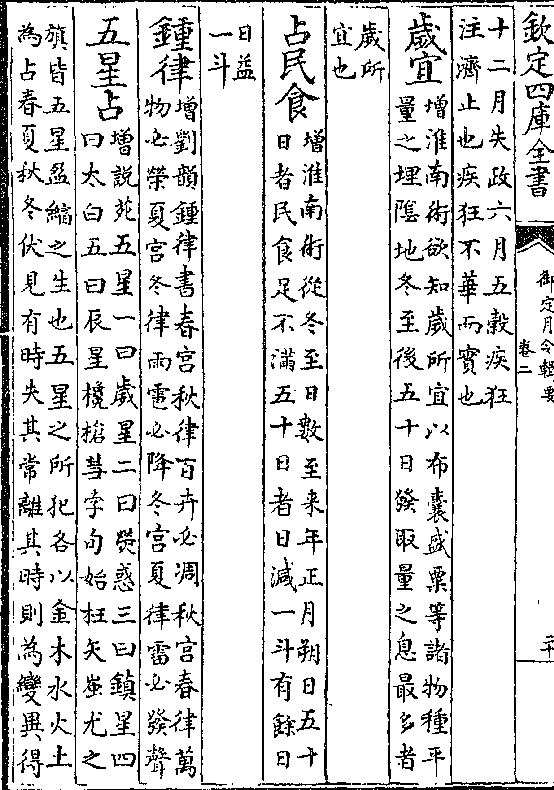 欽定四庫全書
御定月令輯要
卷二
二十
十二月失政六月五穀疾狂
注濟止也疾狂不華而實也
歲宜
增淮南術欲知歲所宜以布囊盛粟等諸物種平
量之埋隂地冬至後五十日發取量之息最多者
歲所
宜也
占民食
增淮南術從冬至日數至来年正月朔日五十
日者民食足不滿五十日者日減一斗有餘日
日益
一斗
鍾律
增劉韻鍾律書春宮秋律百卉必凋秋宮春律萬
物必榮夏宮冬律雨雹必降冬宮夏律雷必發聲
五星占
增說苑五星一曰歲星二曰熒惑三曰鎮星四
曰太白五曰辰星欃槍彗孛旬始枉矢蚩尤之
旗皆五星盈縮之生也五星之所犯各以金木水火土
為占春夏秋冬伏見有時失其常離其時則為變異得